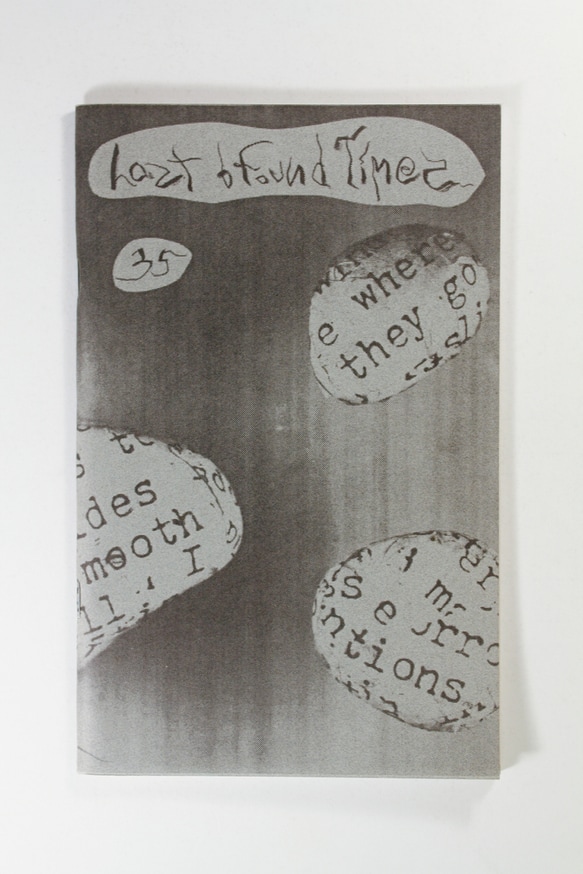 Lost & Found Times
35
where
they go
ides
mooth
I
ll
m
s e orro
ntions